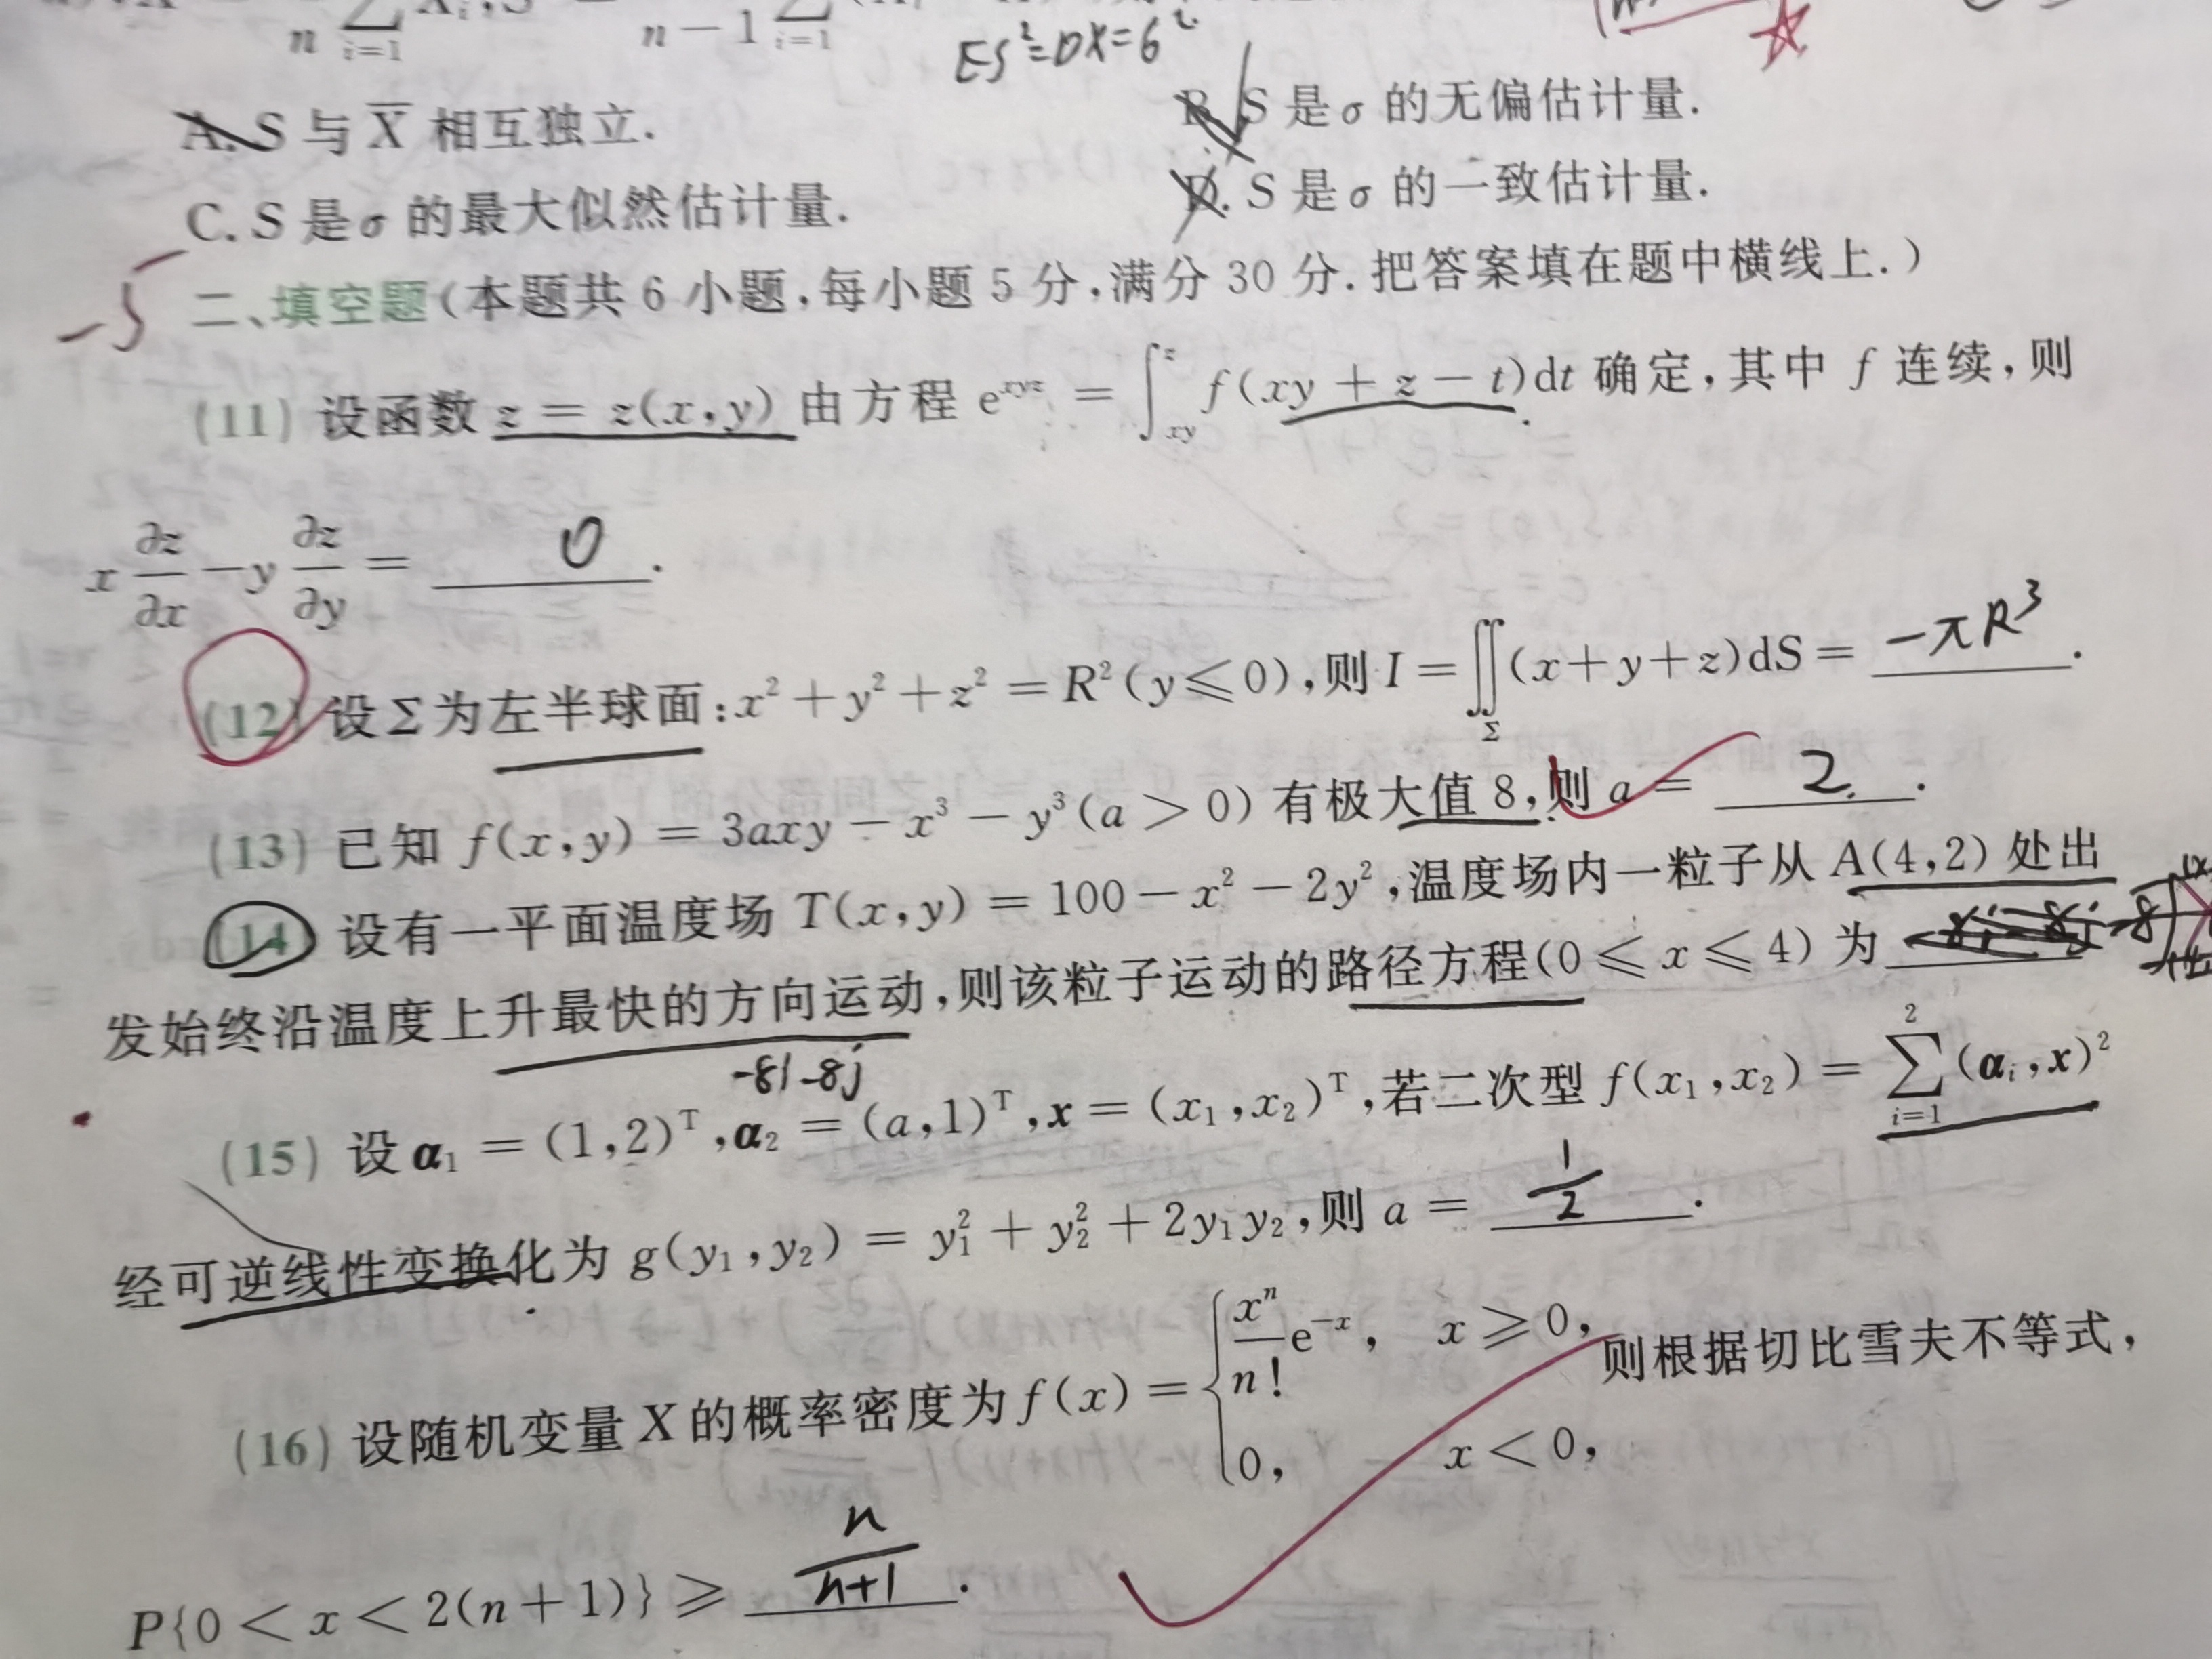 n ∑ i=1 n−1 ∑ i=1
ES²=DX=6²
A. S 与 X̄ 相互独立. B. S 是 σ 的无偏估计量.
C. S 是 σ 的最大似然估计量. D. S 是 σ 的一致估计量.
-5
二、填空题(本题共 6 小题,每小题 5 分,满分 30 分.把答案填在题中横线上.)
(11) 设函数 z = z(x,y) 由方程 e^{xyz} = ∫_{xy}^{z} f(xy + z − t)dt 确定,其中 f 连续,则
x ∂z/∂x − y ∂z/∂y = 0 .
(12) 设 Σ 为左半球面:x² + y² + z² = R²(y ⩽ 0),则 I = ∬_Σ (x + y + z)dS = −πR³ .
(13) 已知 f(x,y) = 3axy − x³ − y³(a > 0) 有极大值 8,则 a = 2 .
(14) 设有一平面温度场 T(x,y) = 100 − x² − 2y²,温度场内一粒子从 A(4,2) 处出
发始终沿温度上升最快的方向运动,则该粒子运动的路径方程(0 ⩽ x ⩽ 4) 为
-8i-8j
(15) 设 α₁ = (1,2)ᵀ,α₂ = (a,1)ᵀ,x = (x₁,x₂)ᵀ,若二次型 f(x₁,x₂) = ∑_{i=1}^{2} (αᵢ,x)²
经可逆线性变换化为 g(y₁,y₂) = y₁² + y₂² + 2y₁y₂,则 a = 1/2 .
(16) 设随机变量 X 的概率密度为 f(x) = { x^n/n! e^{−x}, x ⩾ 0, 则根据切比雪夫不等式,
0, x < 0,
P{0 < x < 2(n+1)} ⩾ n/(n+1) .